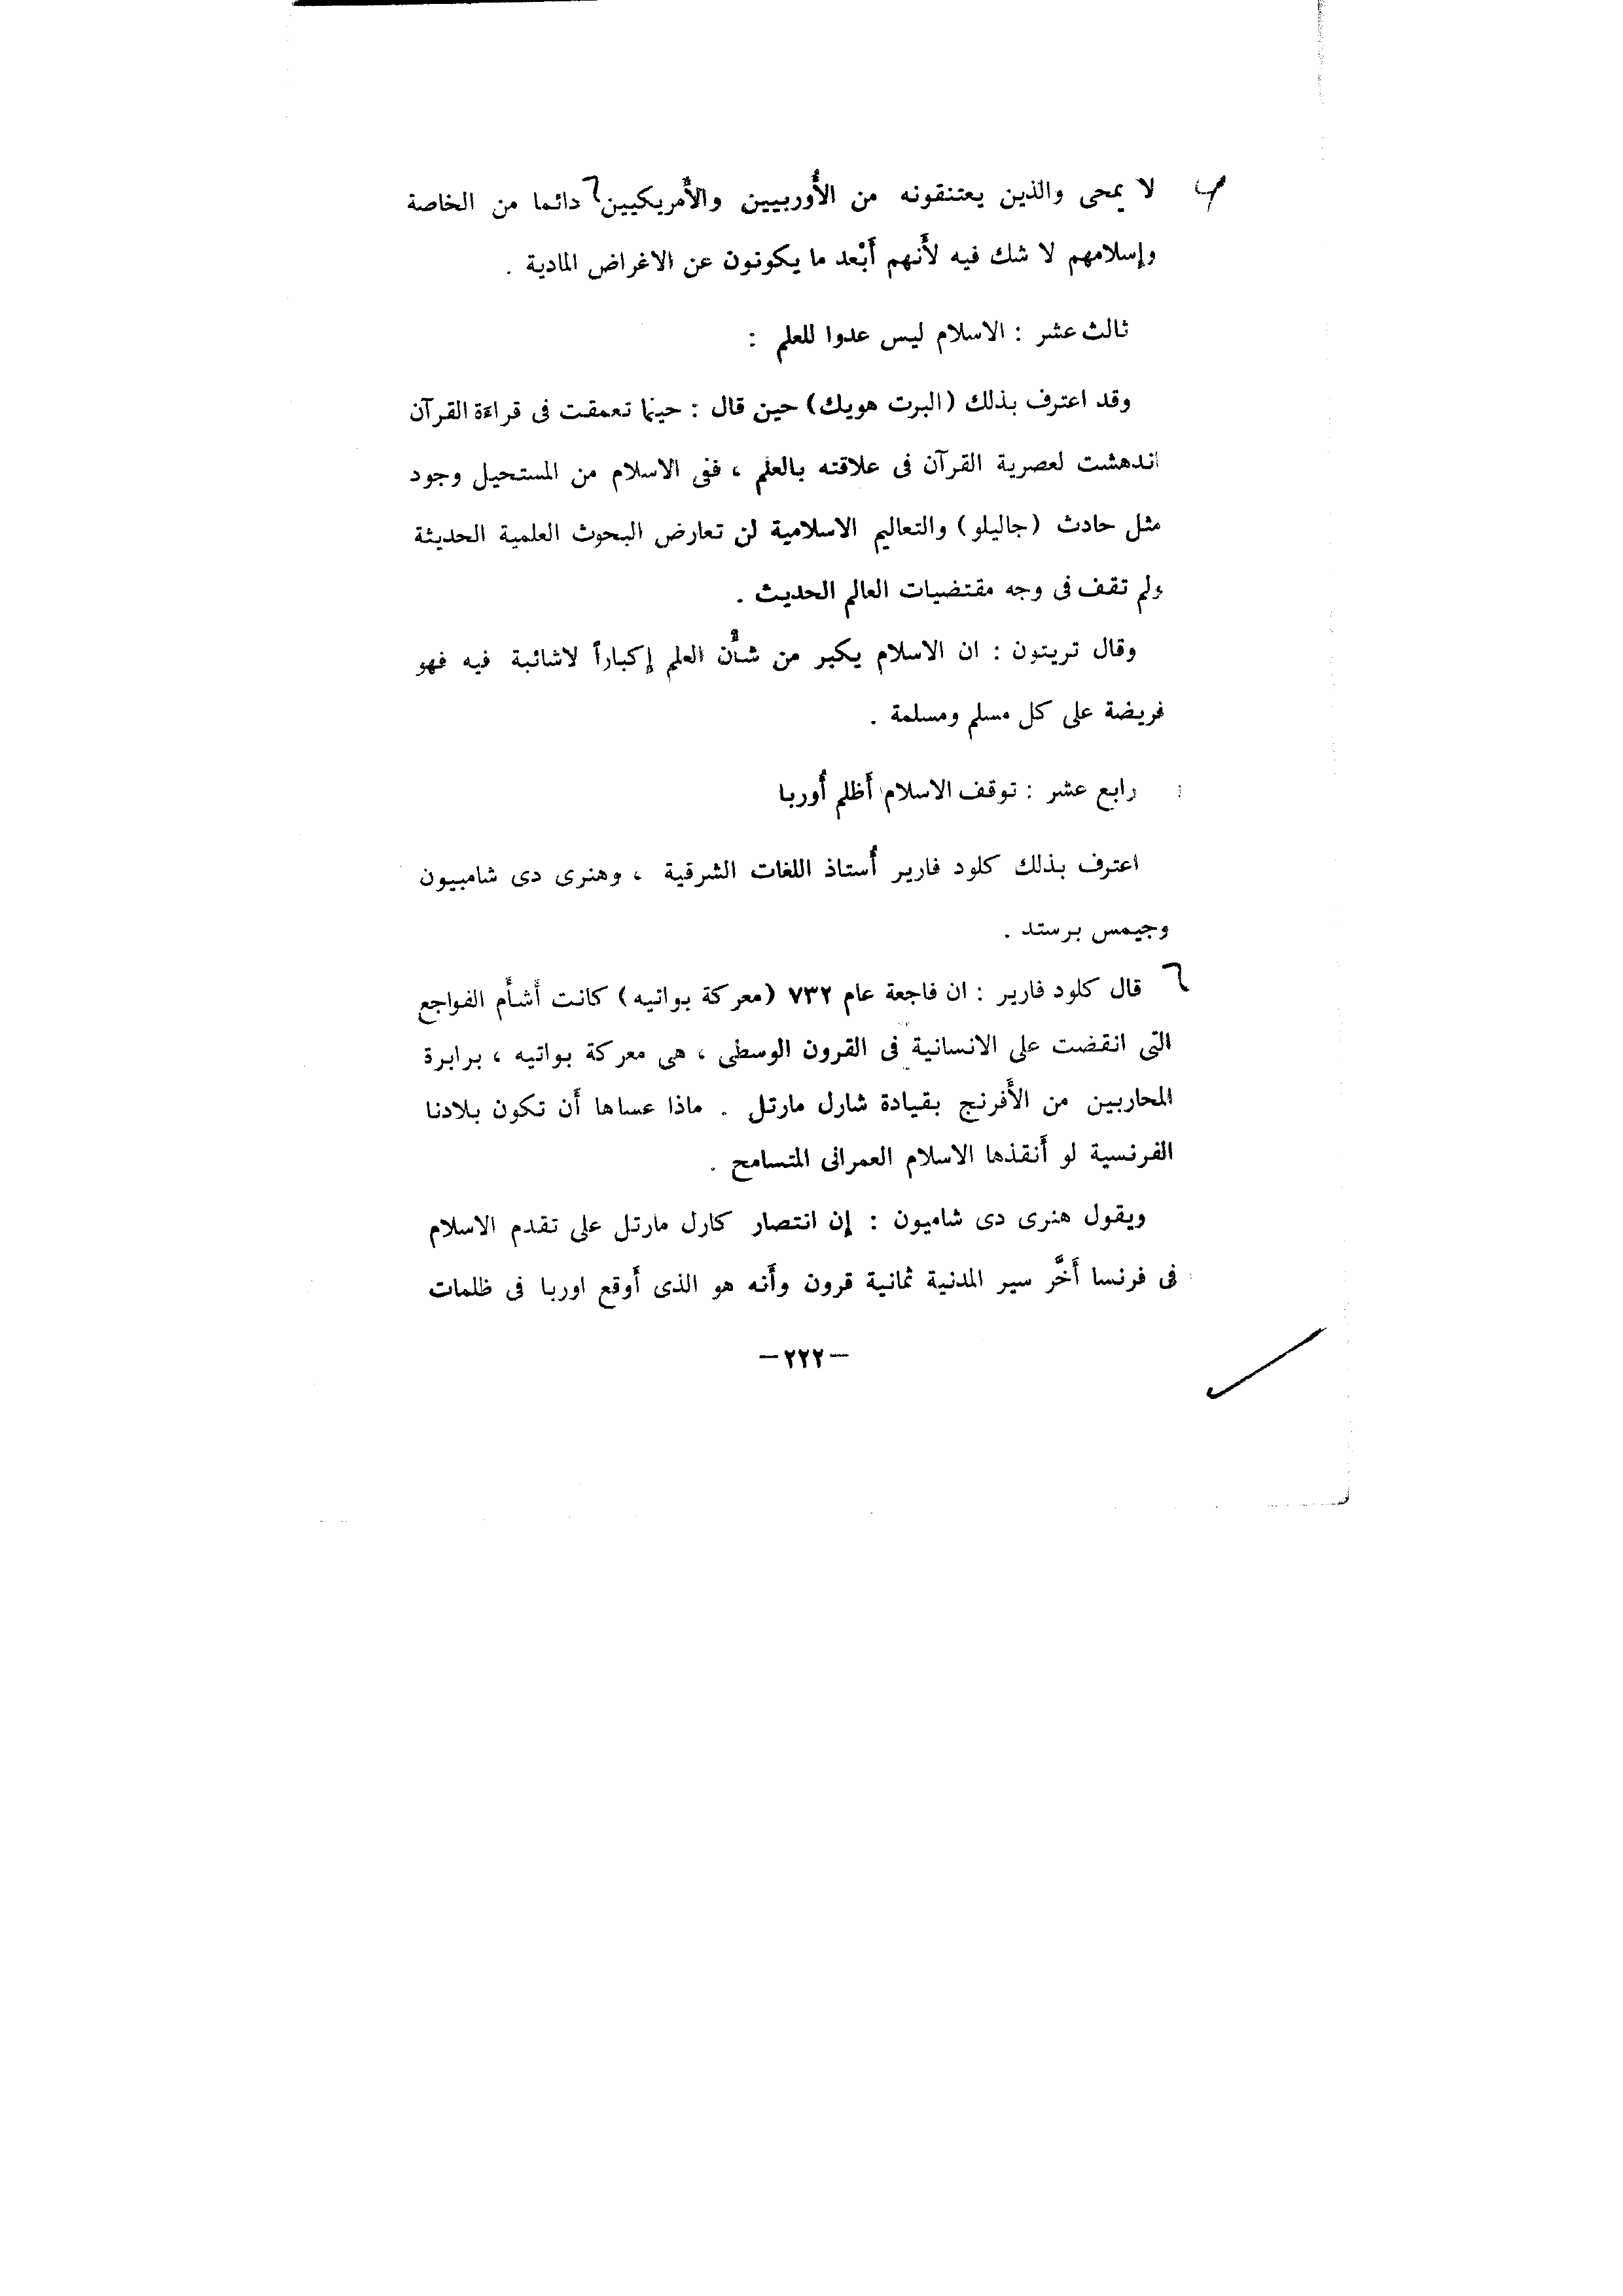 لا يمحى والذين يعتنقونه من الأُوربيين والأَمريكيين دائما من الخاصة
وإسلامهم لا شك فيه لأَنهم أَبْعد ما يكونون عن الاغراض المادية .
ثالث عشر : الاسلام ليس عدوا للعلم :
وقد اعترف بذلك (البرت هويك) حين قال : حينما تعمقت فى قراءة القرآن
اندهشت لعصرية القرآن فى علاقته بالعلم ، ففى الاسلام من المستحيل وجود
مثل حادث (جاليلو) والتعاليم الاسلامية لن تعارض البحوث العلمية الحديثة
ولم تقف فى وجه مقتضيات العالم الحديث .
وقال تريتون : ان الاسلام يكبر من شأْن العلم إكباراً لاشائبة فيه فهو
فريضة على كل مسلم ومسلمة .
رابع عشر : توقف الاسلام أَظلم أُوربا
اعترف بذلك كلود فارير أُستاذ اللغات الشرقية ، وهنرى دى شامبيون
وجيمس برستد .
قال كلود فارير : ان فاجعة عام ٧٣٢ (معركة بواتيه) كانت أَشأَم الفواجع
التى انقضت على الانسانية فى القرون الوسطى ، هى معركة بواتيه ، برابرة
المحاربين من الأَفرنج بقيادة شارل مارتل . ماذا عساها أَن تكون بلادنا
الفرنسية لو أَنقذها الاسلام العمرانى المتسامح .
ويقول هنرى دى شاميون : إن انتصار كارل مارتل على تقدم الاسلام
فى فرنسا أَخَّر سير المدنية ثمانية قرون وأَنه هو الذى أَوقع اوربا فى ظلمات
–٢٢٢–